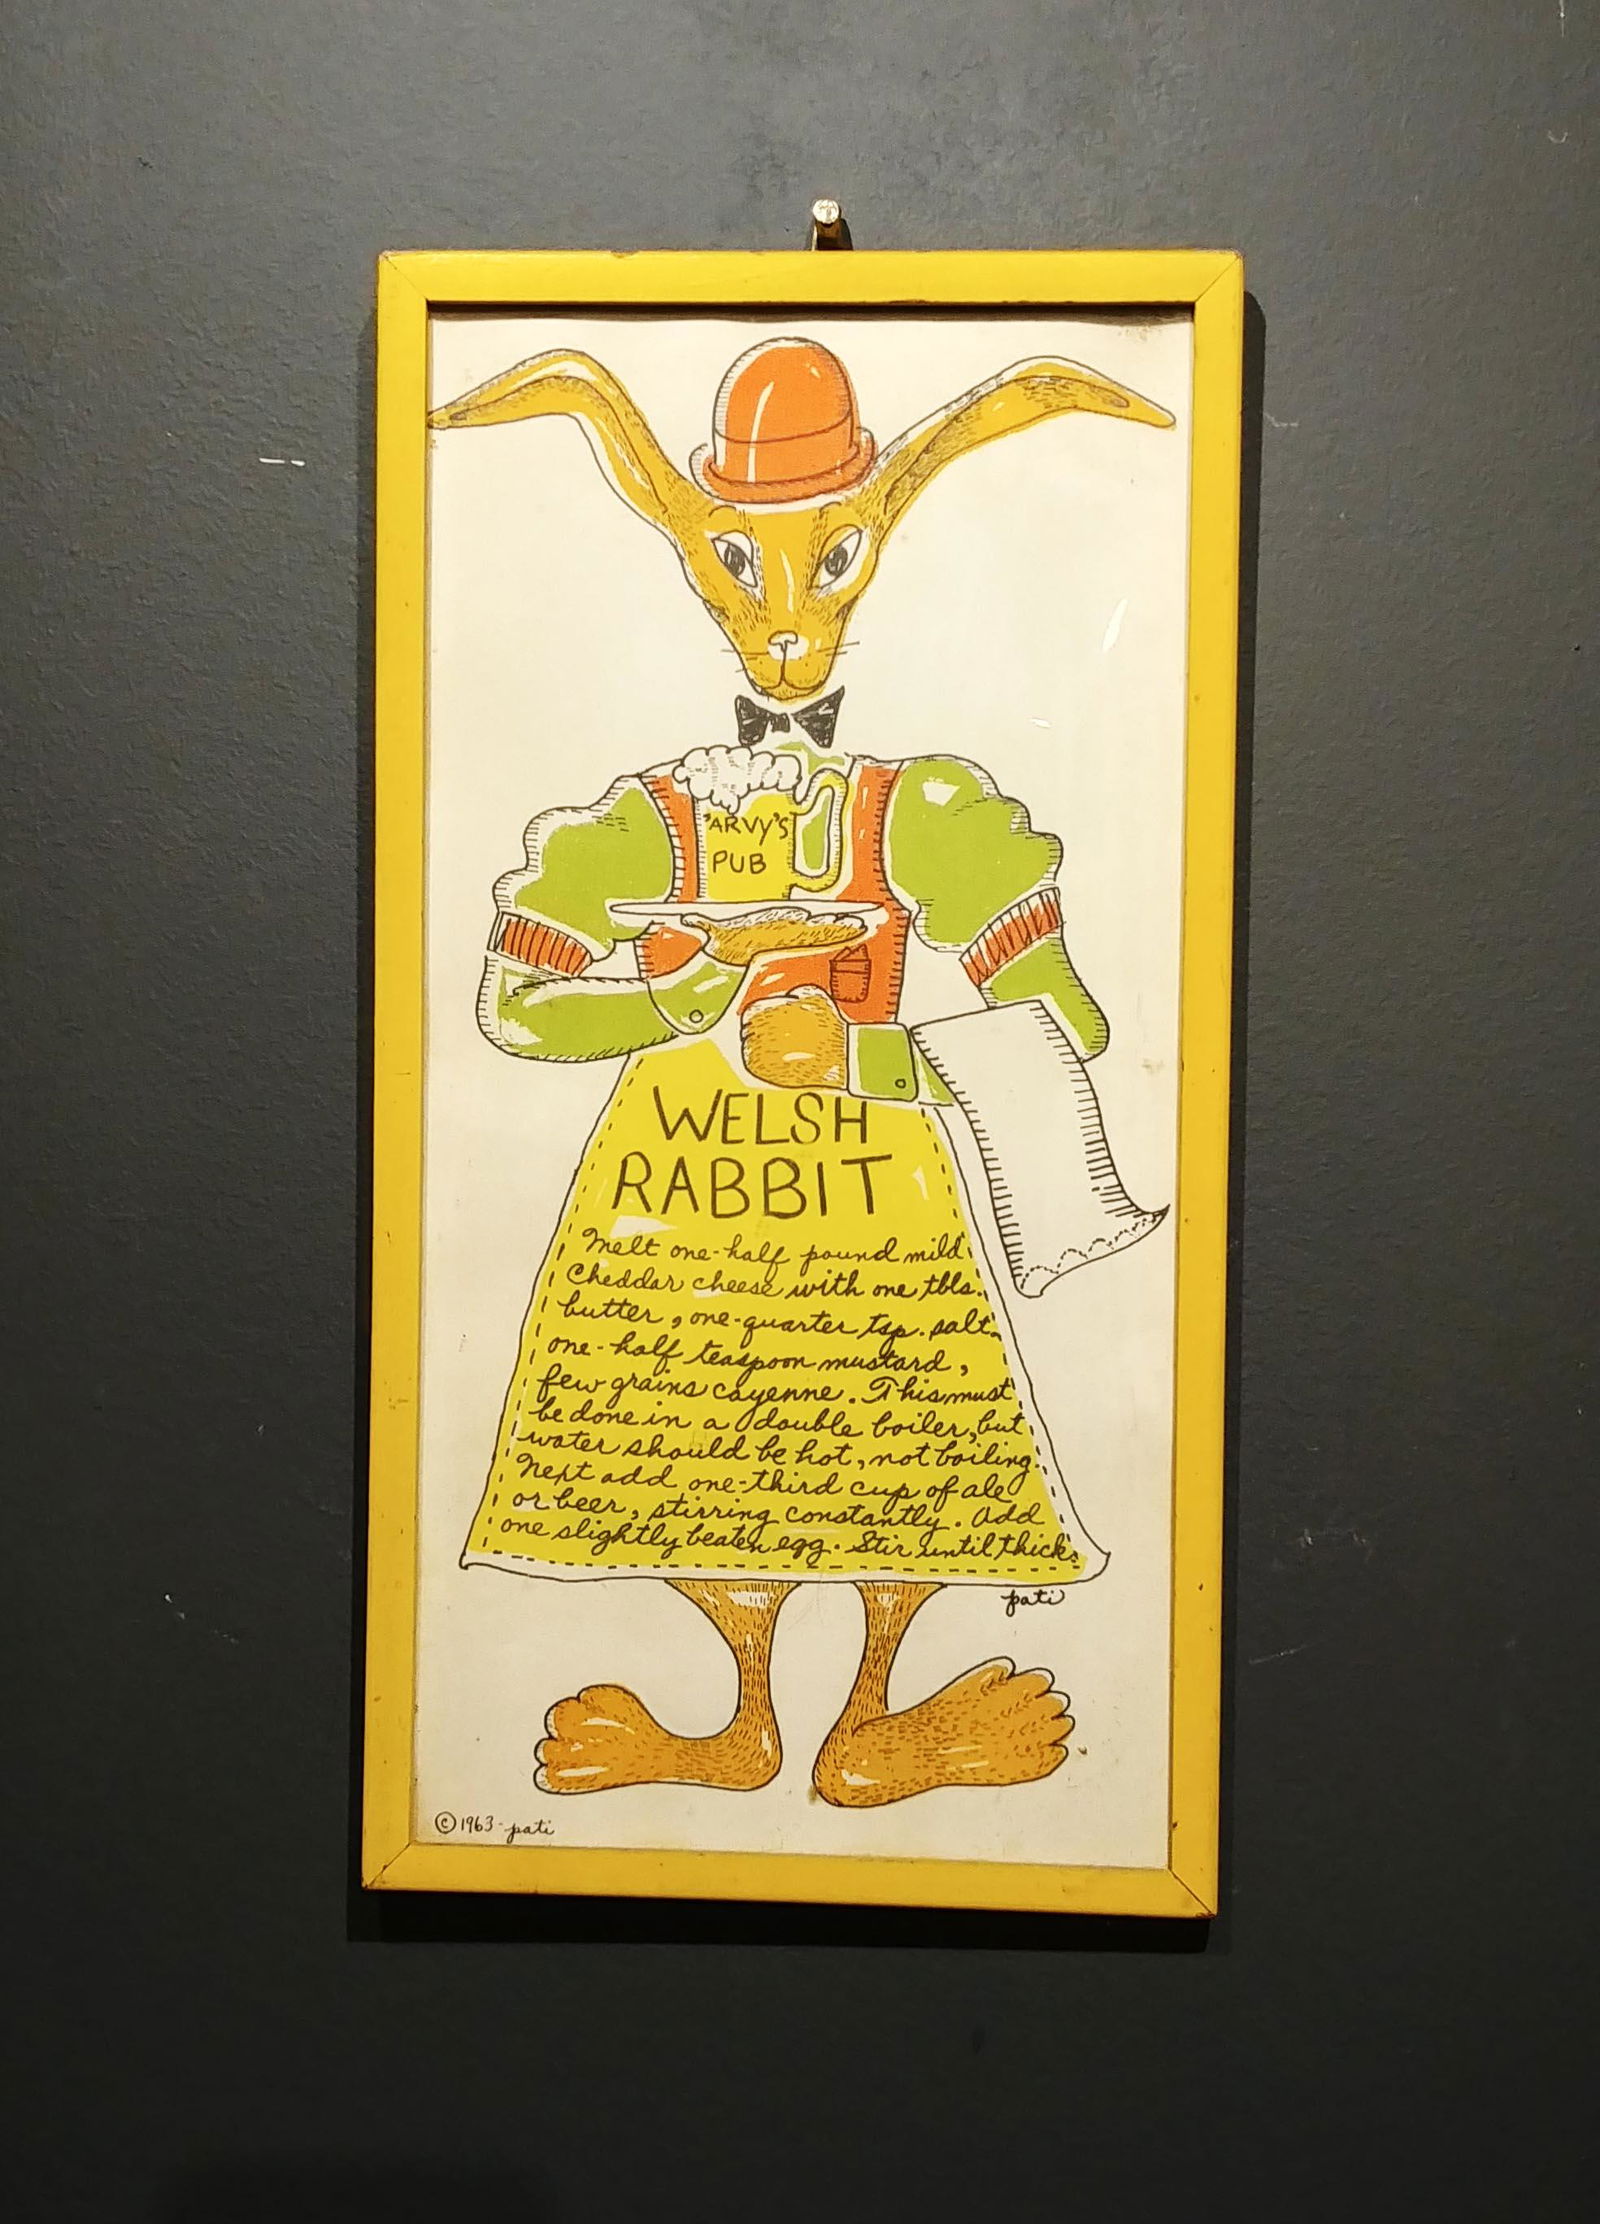 'ARVY'S
PUB
WELSH
RABBIT
Melt one-half pound mild
Cheddar cheese with one tbls.
butter, one-quarter tsp. salt.
one-half teaspoon mustard,
few grains cayenne. This must
be done in a double boiler, but
water should be hot, not boiling.
Next add one-third cup of ale
or beer, stirring constantly. Add
one slightly beaten egg. Stir until thick.
pati
© 1963 - pati